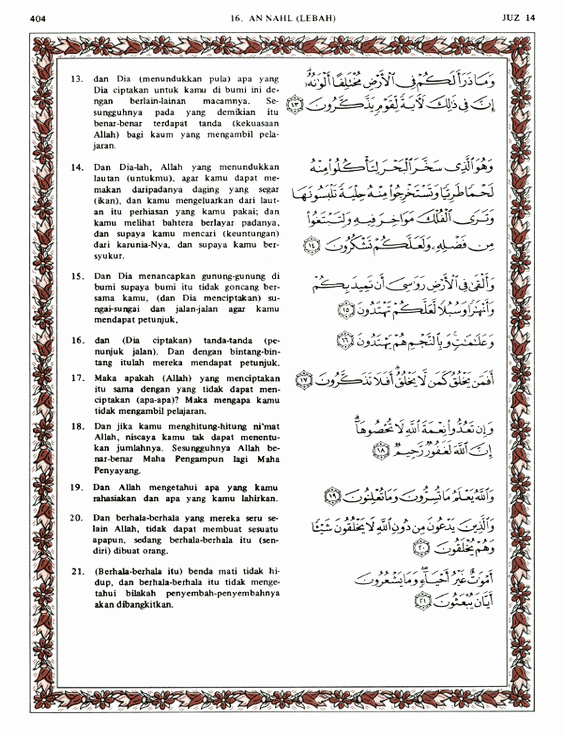 404
16. AN NAHL (LEBAH)
JUZ 14
13. dan Dia (menundukkan pula) apa yang
Dia ciptakan untuk kamu di bumi ini de-
ngan berlain-lainan macamnya. Se-
sungguhnya pada yang demikian itu
benar-benar terdapat tanda (kekuasaan
Allah) bagi kaum yang mengambil pela-
jaran.
وَمَا ذَرَأَ لَكُمْ فِى ٱلْأَرْضِ مُخْتَلِفًا أَلْوَٰنُهُۥٓ
إِنَّ فِى ذَٰلِكَ لَءَايَةً لِّقَوْمٍ يَذَّكَّرُونَ ١٣
14. Dan Dia-lah, Allah yang menundukkan
lautan (untukmu), agar kamu dapat me-
makan daripadanya daging yang segar
(ikan), dan kamu mengeluarkan dari laut-
an itu perhiasan yang kamu pakai; dan
kamu melihat bahtera berlayar padanya,
dan supaya kamu mencari (keuntungan)
dari karunia-Nya, dan supaya kamu ber-
syukur.
وَهُوَ ٱلَّذِى سَخَّرَ ٱلْبَحْرَ لِتَأْكُلُوا۟ مِنْهُ
لَحْمًا طَرِيًّا وَتَسْتَخْرِجُوا۟ مِنْهُ حِلْيَةً تَلْبَسُونَهَا
وَتَرَى ٱلْفُلْكَ مَوَاخِرَ فِيهِ وَلِتَبْتَغُوا۟
مِن فَضْلِهِۦ وَلَعَلَّكُمْ تَشْكُرُونَ ١٤
15. Dan Dia menancapkan gunung-gunung di
bumi supaya bumi itu tidak goncang ber-
sama kamu, (dan Dia menciptakan) su-
ngai-sungai dan jalan-jalan agar kamu
mendapat petunjuk,
وَأَلْقَىٰ فِى ٱلْأَرْضِ رَوَٰسِىَ أَن تَمِيدَ بِكُمْ
وَأَنْهَٰرًا وَسُبُلًا لَّعَلَّكُمْ تَهْتَدُونَ ١٥
16. dan (Dia ciptakan) tanda-tanda (pe-
nunjuk jalan). Dan dengan bintang-bin-
tang itulah mereka mendapat petunjuk.
وَعَلَٰمَٰتٍ وَبِٱلنَّجْمِ هُمْ يَهْتَدُونَ ١٦
17. Maka apakah (Allah) yang menciptakan
itu sama dengan yang tidak dapat men-
ciptakan (apa-apa)? Maka mengapa kamu
tidak mengambil pelajaran.
أَفَمَن يَخْلُقُ كَمَن لَّا يَخْلُقُ أَفَلَا تَذَكَّرُونَ ١٧
18. Dan jika kamu menghitung-hitung ni'mat
Allah, niscaya kamu tak dapat menentu-
kan jumlahnya. Sesungguhnya Allah be-
nar-benar Maha Pengampun lagi Maha
Penyayang.
وَإِن تَعُدُّوا۟ نِعْمَةَ ٱللَّهِ لَا تُحْصُوهَآ
إِنَّ ٱللَّهَ لَغَفُورٌ رَّحِيمٌ ١٨
19. Dan Allah mengetahui apa yang kamu
rahasiakan dan apa yang kamu lahirkan.
وَٱللَّهُ يَعْلَمُ مَا تُسِرُّونَ وَمَا تُعْلِنُونَ ١٩
20. Dan berhala-berhala yang mereka seru se-
lain Allah, tidak dapat membuat sesuatu
apapun, sedang berhala-berhala itu (sen-
diri) dibuat orang.
وَٱلَّذِينَ يَدْعُونَ مِن دُونِ ٱللَّهِ لَا يَخْلُقُونَ شَيْـًٔا
وَهُمْ يُخْلَقُونَ ٢٠
21. (Berhala-berhala itu) benda mati tidak hi-
dup, dan berhala-berhala itu tidak menge-
tahui bilakah penyembah-penyembahnya
akan dibangkitkan.
أَمْوَٰتٌ غَيْرُ أَحْيَآءٍ وَمَا يَشْعُرُونَ
أَيَّانَ يُبْعَثُونَ ٢١